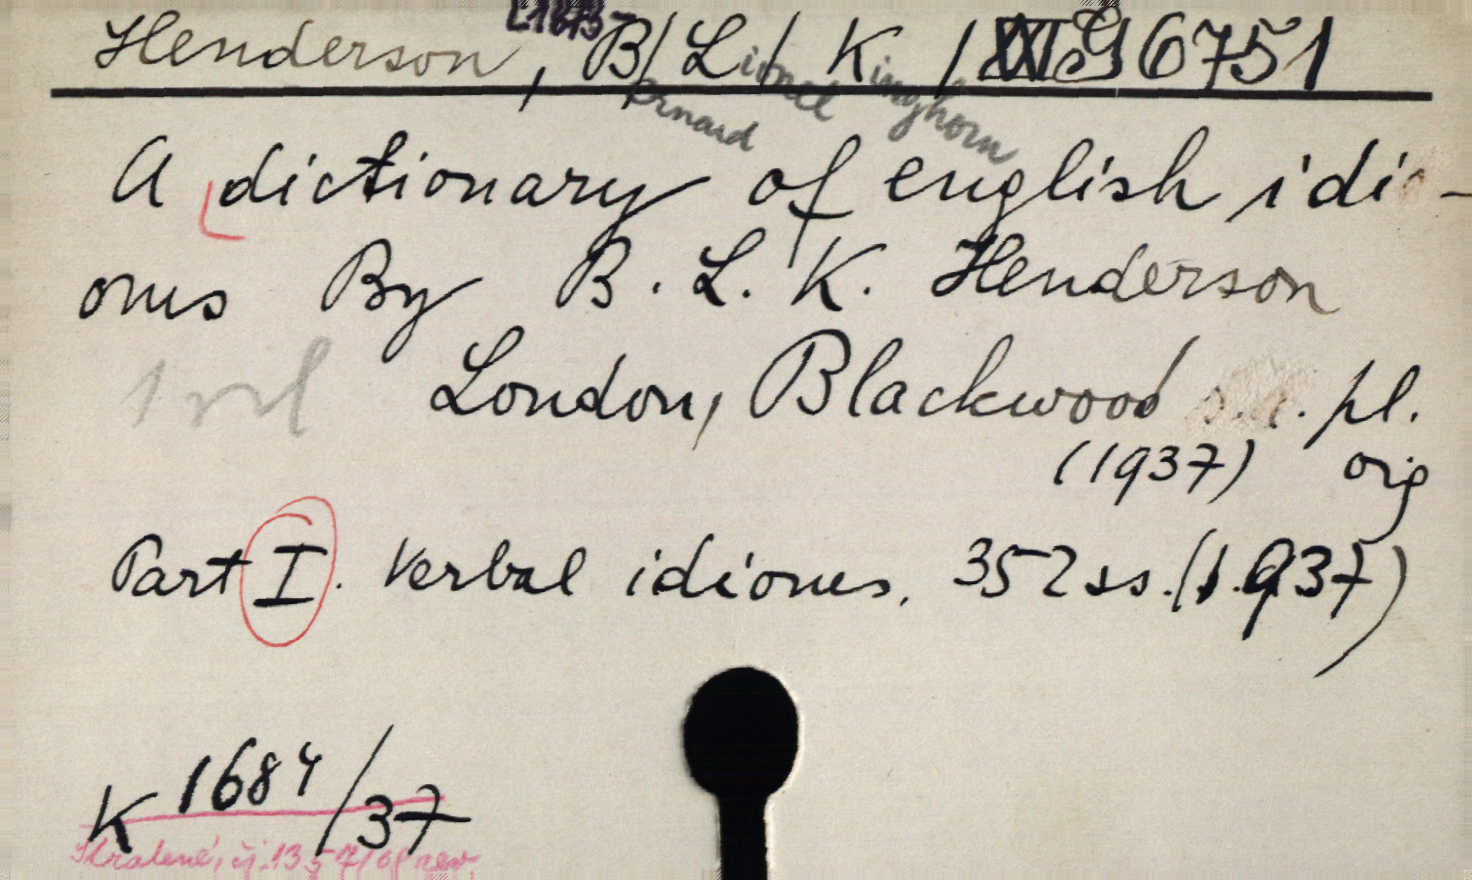 Henderson, B/ L/ K / G 6751
ernard ionel inghorn
A dictionary of english idi-
oms By B. L. K. Henderson
1 vol London, Blackwood pl.
(1937) orig
Part I. Verbal idioms. 352 ss. (1.937)
K 1684/37